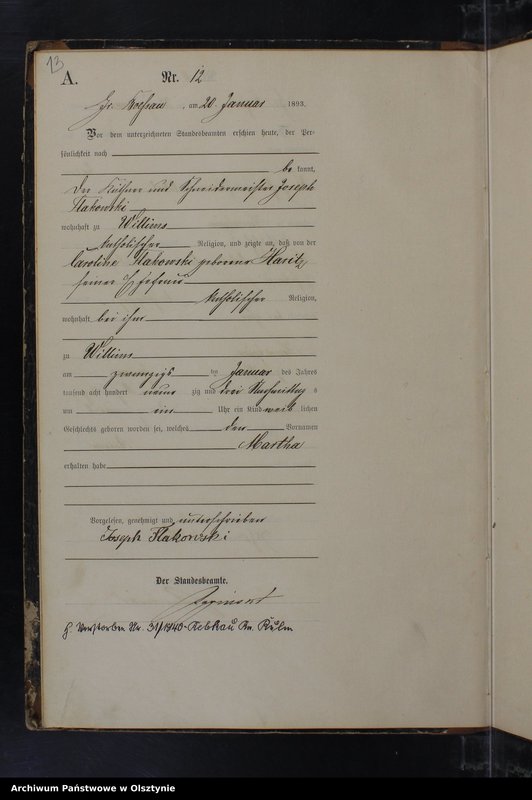 13
A.
Nr. 12
Gr. am 20 Januar 1893.
Vor dem unterzeichneten Standesbeamten erschien heute, der Per-
sönlichkeit nach
be kannt,
der Käthner und Schneidermeister Joseph
Flakowski
wohnhaft zu Willims
katholischer Religion, und zeigte an, daß von der
Caroline Flakowski geborene Haritz
seiner Ehefrau
katholischer Religion,
wohnhaft bei ihm
zu Willims
am zwanzigs ten Januar des Jahres
tausend acht hundert neun zig und drei Nachmittag s
um ein Uhr ein Kind weib lichen
Geschlechts geboren worden sei, welches den Vornamen
Martha
erhalten habe
Vorgelesen, genehmigt und unterschrieben
Joseph Flakowski
Der Standesbeamte.
Verstorben Nr. 31/1940 Kulm
Archiwum Państwowe w Olsztynie